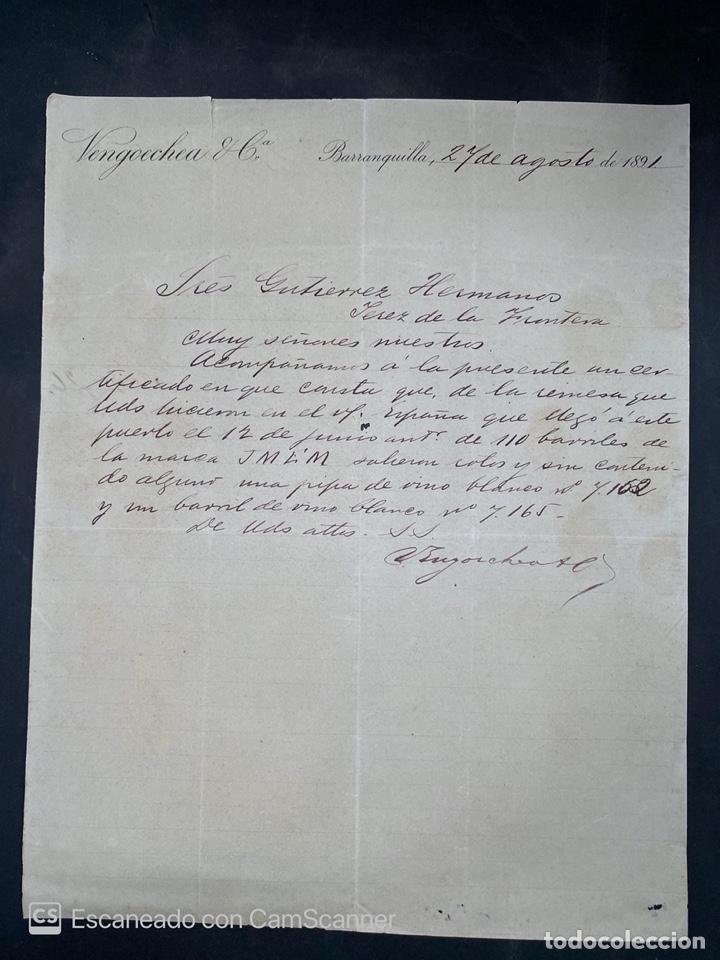 Vengoechea & Cª Barranquilla, 27 de agosto de 1891
Sres Gutierrez Hermanos
Jerez de la Frontera
Muy señores nuestros.
Acompañamos á la presente un cer
tificado en que consta que, de la remesa que
Uds hicieron en el vf. España que llegó á este
puerto el 12 de junio antr. de 110 barriles de
la marca salieron rotos y sin conteni-
do alguno una pipa de vino blanco nº 7.162
y un barril de vino blanco nº 7.165-
De Uds attos. S.S.
Vengoechea & C
CS Escaneado con CamScanner
todocoleccion